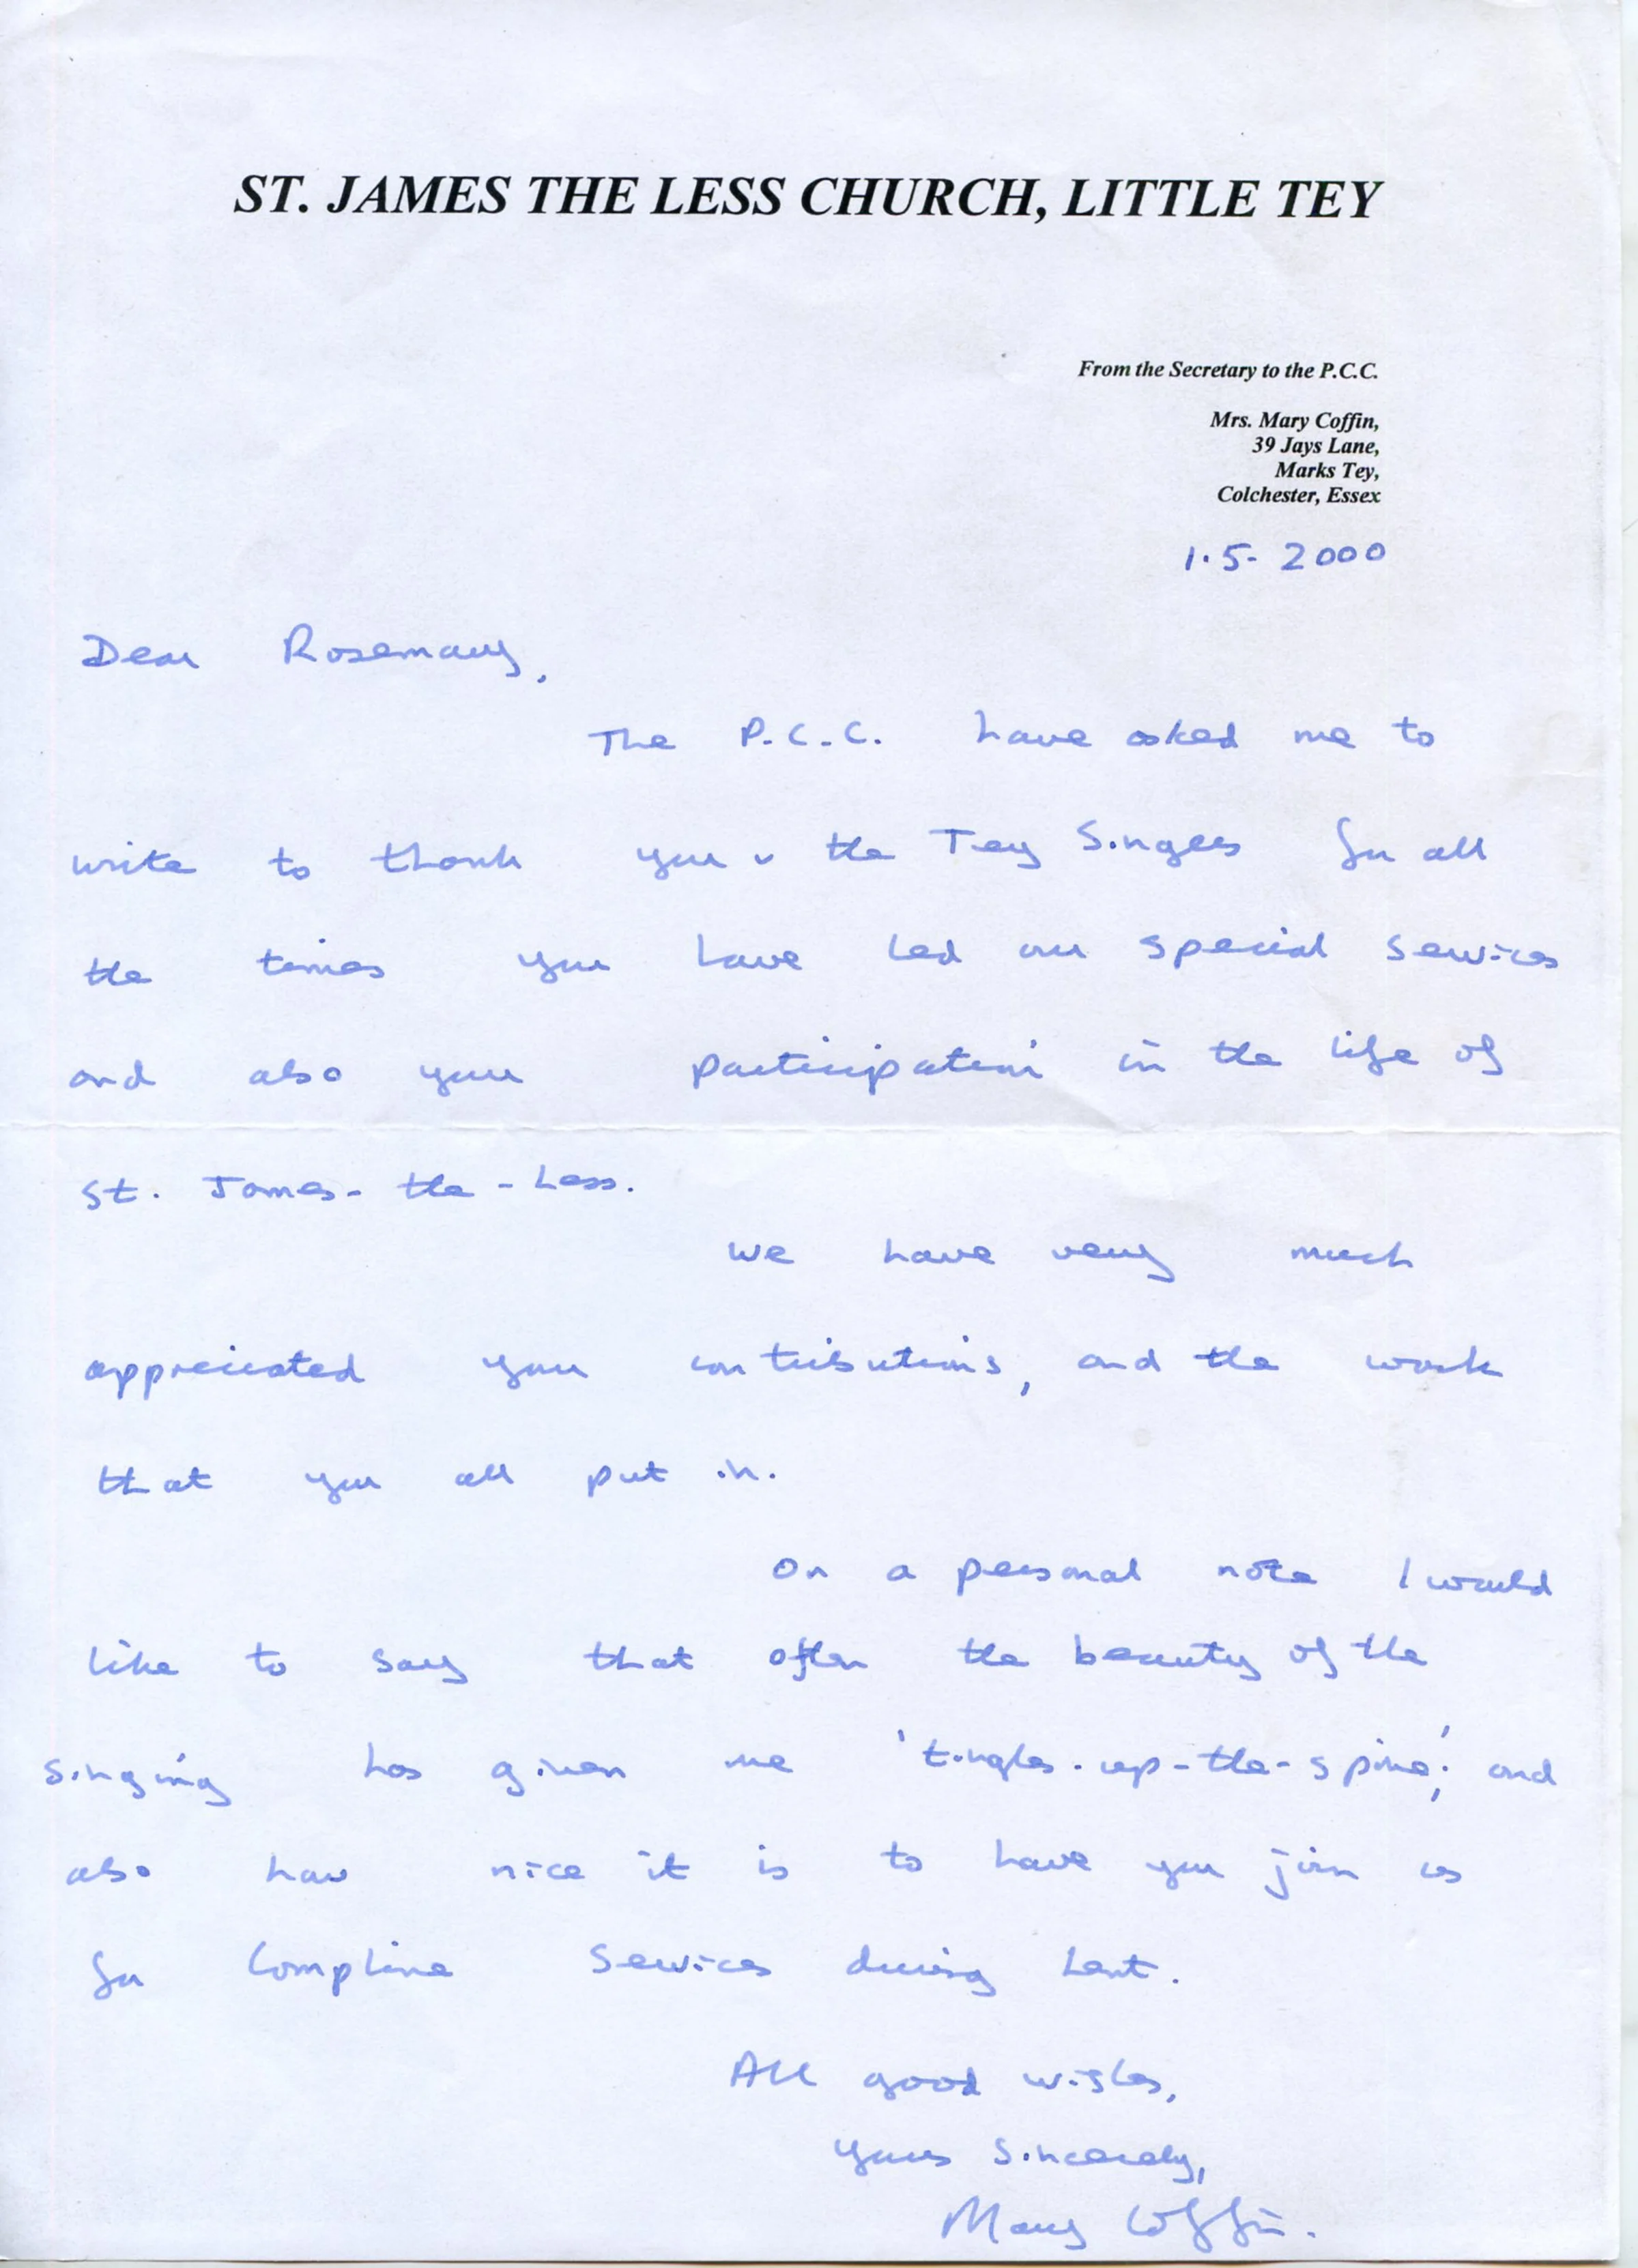 ST. JAMES THE LESS CHURCH, LITTLE TEY
From the Secretary to the P.C.C.
Mrs. Mary Coffin,
39 Jays Lane,
Marks Tey,
Colchester, Essex
1.5. 2000
Dear Rosemary,
The P.C.C. have asked me to
write to thank you & the Tey Singers for all
the times you have led our special services
and also your participation in the life of
St. James-the-Less.
We have very much
appreciated your contributions, and the work
that you all put in.
On a personal note I would
like to say that often the beauty of the
singing has given me 'tingles-up-the-spine'; and
also how nice it is to have you join us
for Compline Services during Lent.
All good wishes,
Yours Sincerely,
Mary Coffin.